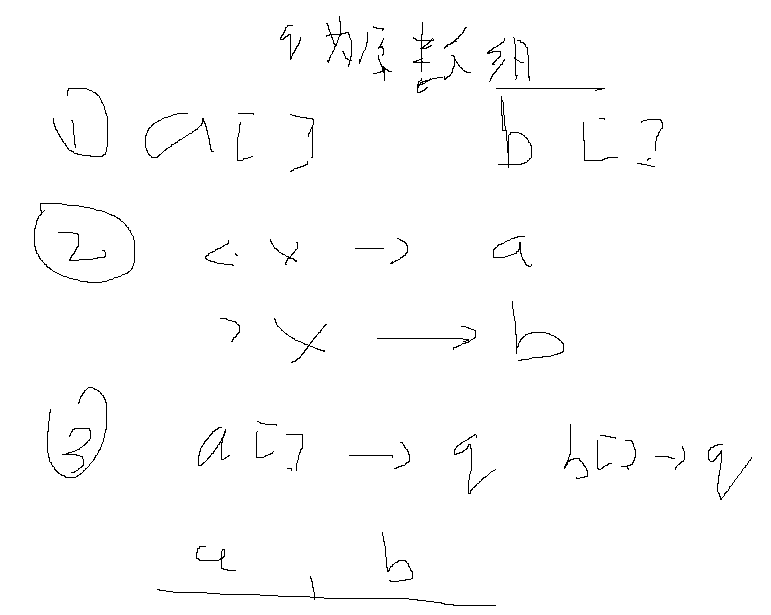 q为原数组
① a[] b[]
② <x → a
>x → b
③ a[] → q b[] → q
a b